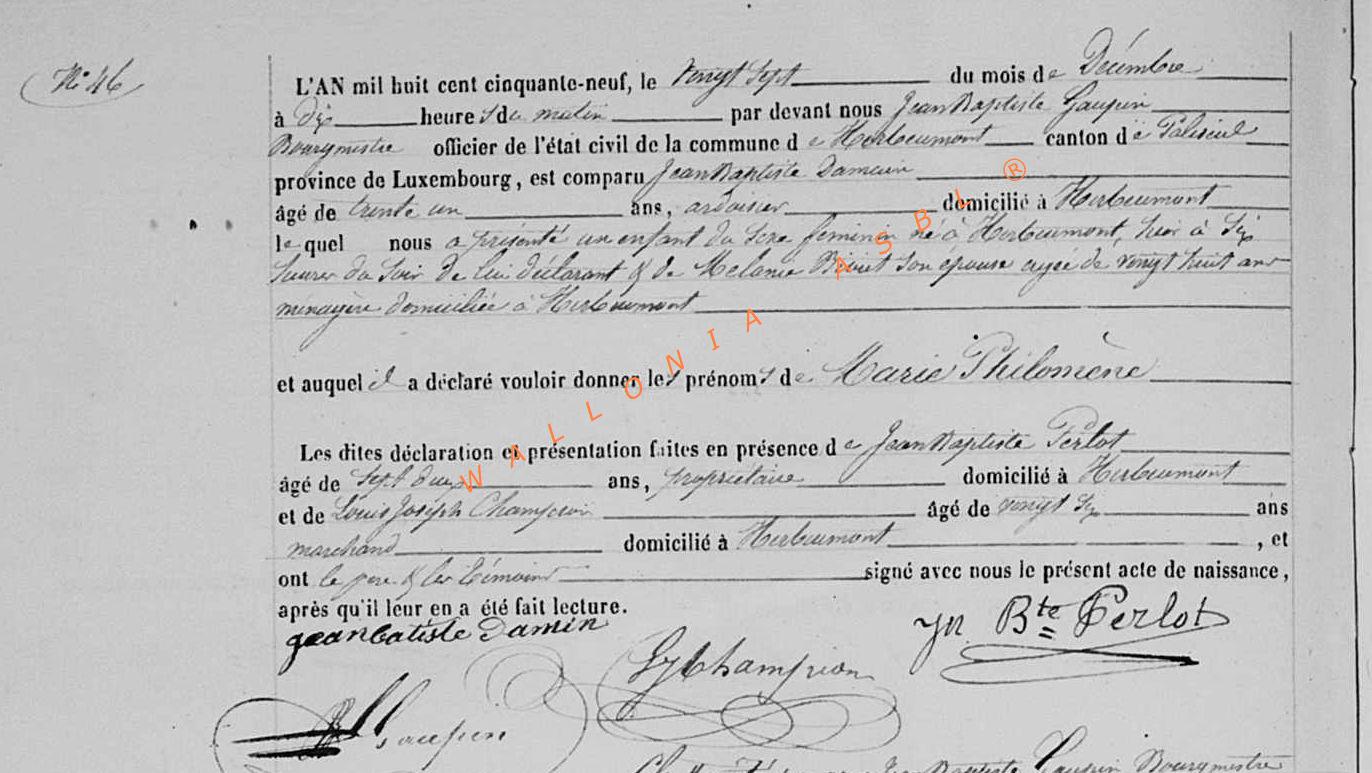 N° 46
L'AN mil huit cent cinquante-neuf, le vingt sept du mois de Décembre
à dix heures du matin par devant nous Jean Baptiste Gaupin
Bourgmestre officier de l'état civil de la commune de Herbeumont canton de Paliseul
province de Luxembourg, est comparu Jean Baptiste Damein
âgé de trente un ans, ardoisier domicilié à Herbeumont
lequel nous a présenté un enfant du sexe feminin né à Herbeumont, hier à Six
heures du soir de lui déclarant & de Melanie son épouse agée de vingt huit ans
menagère domiciliée à Herbeumont
et auquel il a déclaré vouloir donner les prénoms de Marie Philomène
Les dites déclaration et présentation faites en présence de Jean Baptiste Perlot
âgé de ans, propriétaire domicilié à Herbeumont
et de Louis Joseph Champion âgé de vingt Six ans
marchand domicilié à Herbeumont, et
ont le pere & les témoins signé avec nous le présent acte de naissance,
après qu'il leur en a été fait lecture.
jean batiste Damin
Jn Bte Perlot
LJ Champion
Gaupin
Jean Baptiste Gaupin Bourgmestre
WALLONIA ASBL ®